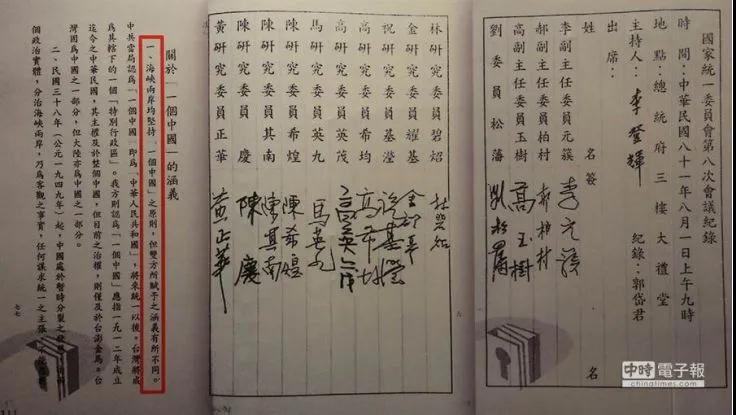 國家統一委員會第八次會議紀錄
時 間：中華民國八十一年八月一日上午九時
地 點：總統府三樓大禮堂
主持人：李登輝 紀錄：郭岱君
出席：
姓 名 簽 名
李副主任委員元簇 李元簇
郝副主任委員柏村 郝柏村
高副主任委員玉樹 高玉樹
劉委員松藩 劉松藩
林研究委員碧炤 林碧炤
金研究委員耀基 金耀基
祝研究委員基瀅 祝基瀅
高研究委員希均 高希均
高研究委員英茂 高英茂
馬研究委員英九 馬英九
陳研究委員希煌 陳希煌
陳研究委員其南 陳其南
陳研究委員慶 陳慶
黃研究委員正華 黃正華
關於「一個中國」的涵義
一、海峽兩岸均堅持「一個中國」之原則，但雙方所賦予之涵義有所不同。
中共當局認為「一個中國」即為「中華人民共和國」，將來統一以後，台灣將成
為其轄下的一個「特別行政區」。我方則認為「一個中國」應指一九一二年成立
迄今之中華民國，其主權及於整個中國，但目前之治權，則僅及於台澎金馬。台
灣固為中國之一部分，但大陸亦為中國之一部分。
二、民國三十八年（公元一九四九年）起，中國處於暫時分裂之
個政治實體，分治海峽兩岸，乃為客觀之事實，任何謀求統一之主張
七七
中時電子報
chinatimes.com